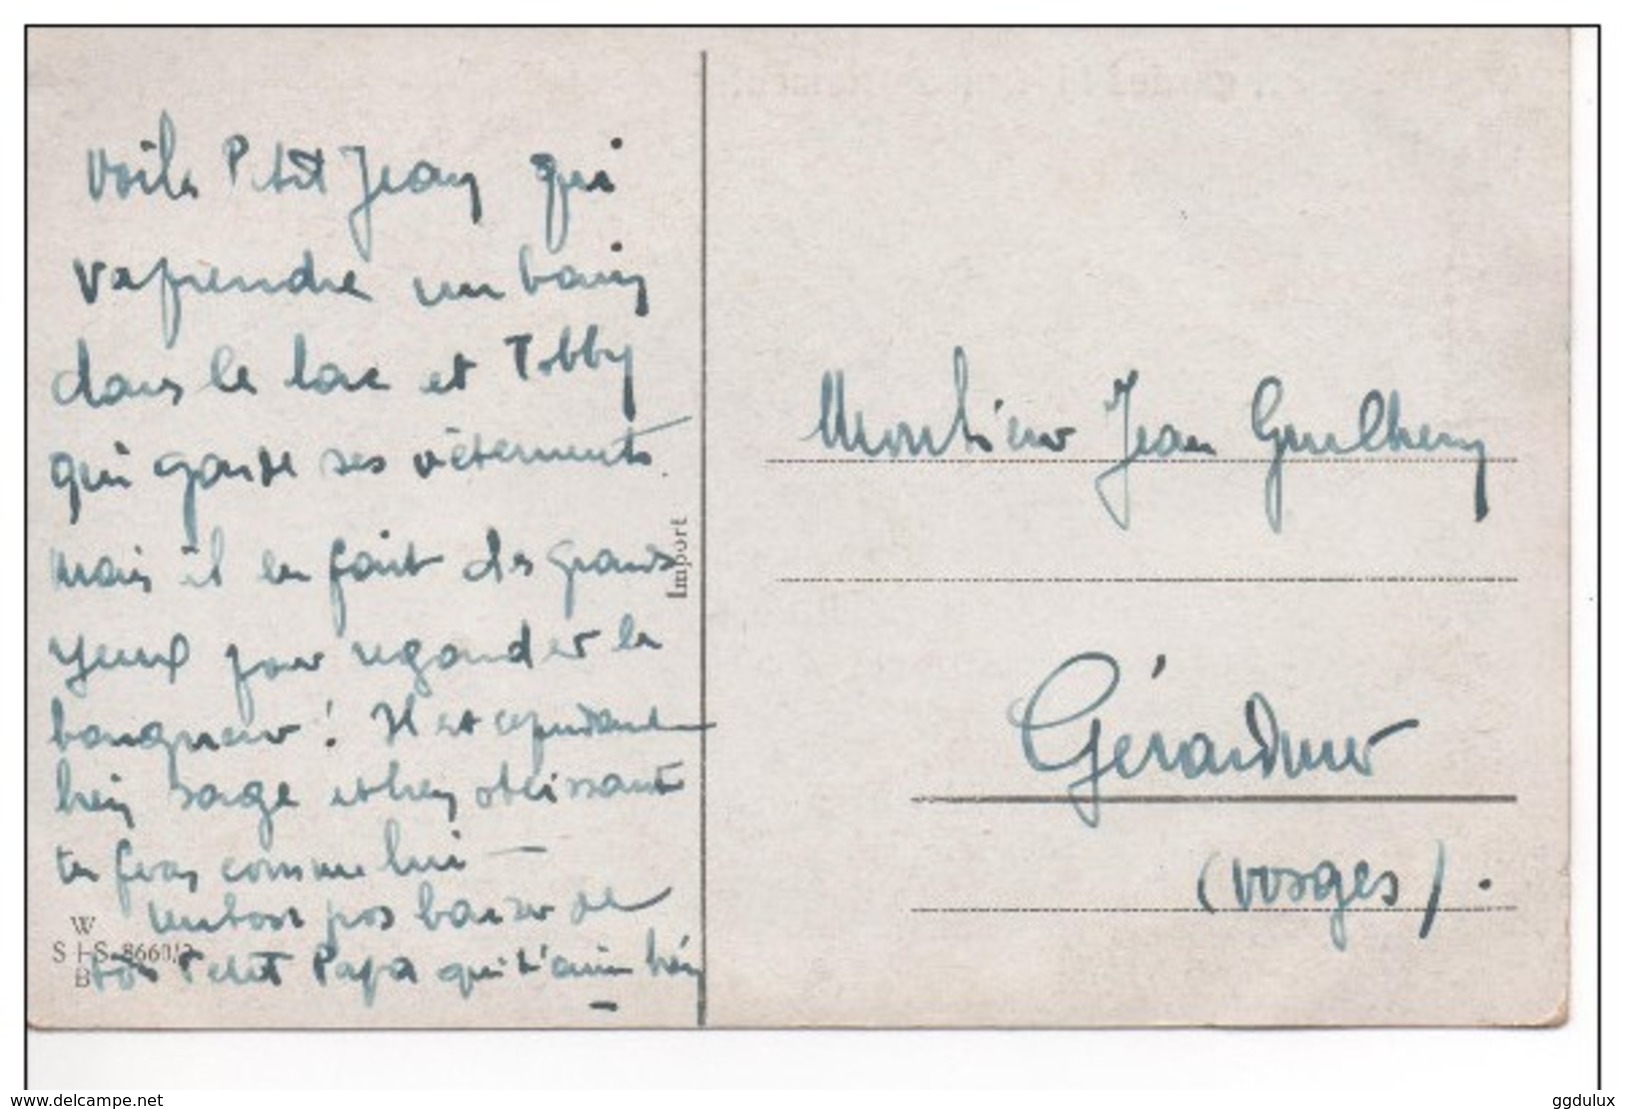 Voilà Petit Jean qui
va prendre un bain
dans le lac et Tobby
qui garde ses vêtements
mais il en fait des grands
yeux pour regarder le
baigneur ! Il est cependant
bien sage et bien obéissant
tu feras comme lui —
pas baiser de
ton Petit Papa qui t'aime bien
W
S I-S 8660/2
B
Import
Monsieur Jean Guilhery
Gérardmer
(Vosges).
www.delcampe.net
ggdulux